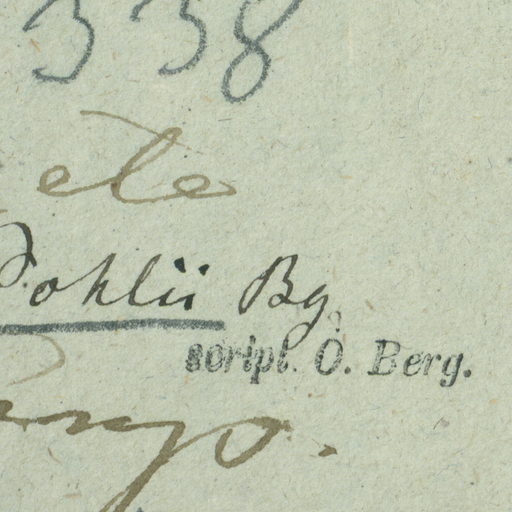 338
ete
Pohlii Bg
script. O. Berg.